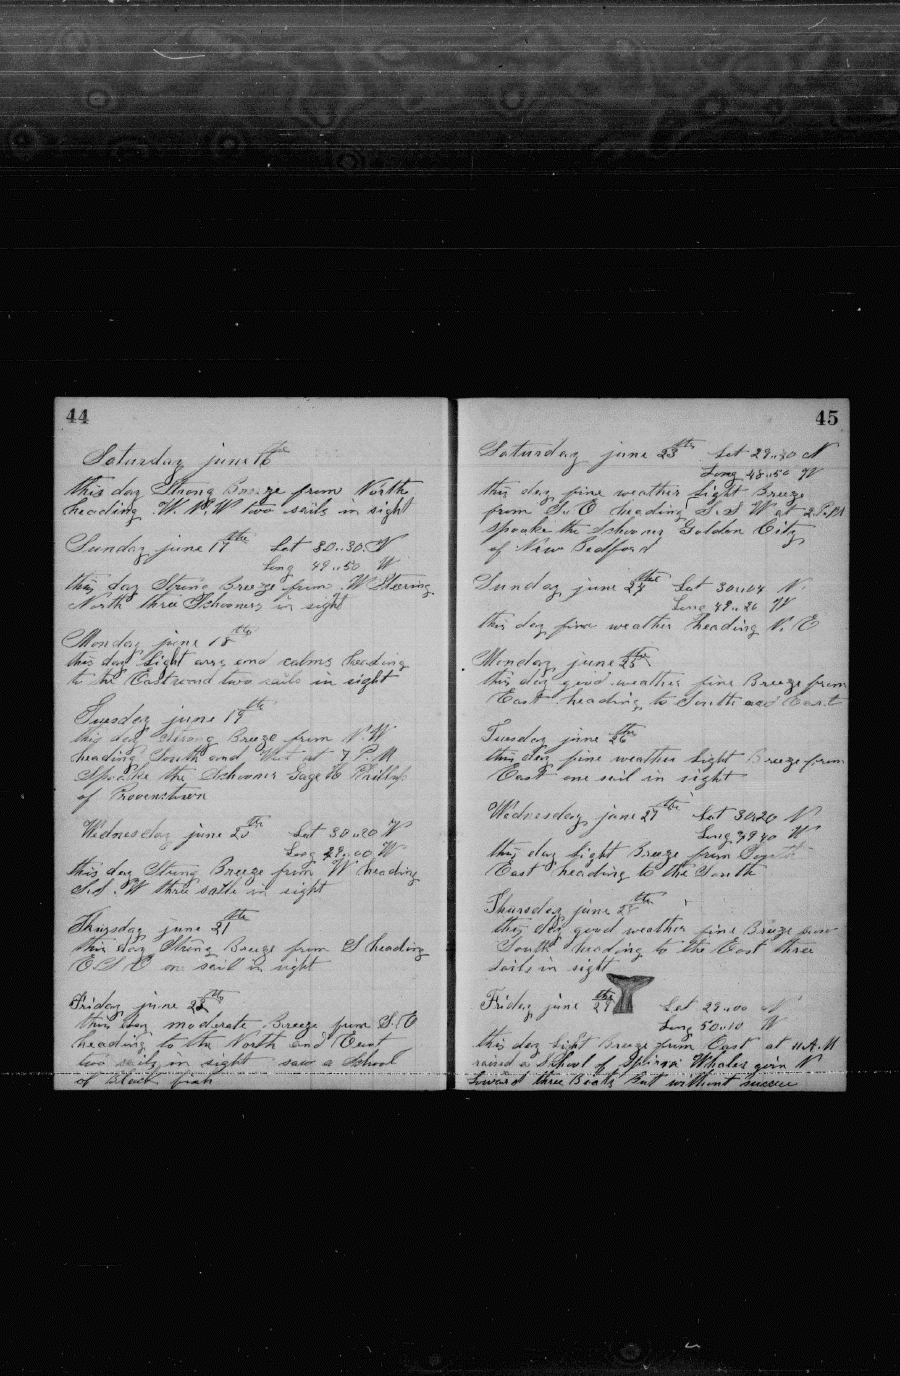 44
Saturday june 16th
this day Strong Breeze from North
heading W. N. W two sails in sight
Sunday june 17th Lat 30..30 N
Long 49..50 W
this day Strong Breeze from W Steering
North three Schooners in sight
Monday june 18th
this day Light airs and calms heading
to the Eastward two sails in sight
Tuesday june 19th
this day strong Breeze from N W
heading South and West at 7 P.M
Spoake the Schooner Gage H Phillips
of Provenstown
Wednesday june 20th Lat 30..20 N
Long 49..00 W
this day Strong Breeze from W heading
S.S.W three sails in sight
Thursday june 21th
this day Strong Breeze from S heading
E S E one sail in sight
Friday june 22th
this day moderate Breeze from S.E
heading to the North and East
two sails in sight saw a School
of Black fish
45
Saturday june 23th Lat 29..30 N
Long 48..50 W
this day fine weather Light Breeze
from S.E heading S.S W at 2 P.M
spoake the Schooner Golden City
of New Bedford
Sunday june 24the Lat 30..04 N.
Long 49..26 W
this day fine weather heading N. E
Monday june 25th
this day good weather fine Breeze from
East heading to South and East
Tuesday june 26th
this day fine weather Light Breeze from
East one sail in sight
Wednesday june 27th Lat 30..20 N
Long 40 W
this day Light Breeze from South
East heading to the South
Thursday june 28th
this day good weather fine Breeze from
South heading to the East three
sails in sight
Friday june 29th Lat 29..00 N
Long 50..10 W
this day Light Breeze from East at 11 A.M
raised a School of Whales goin N
Lowerd three Boats But without succee